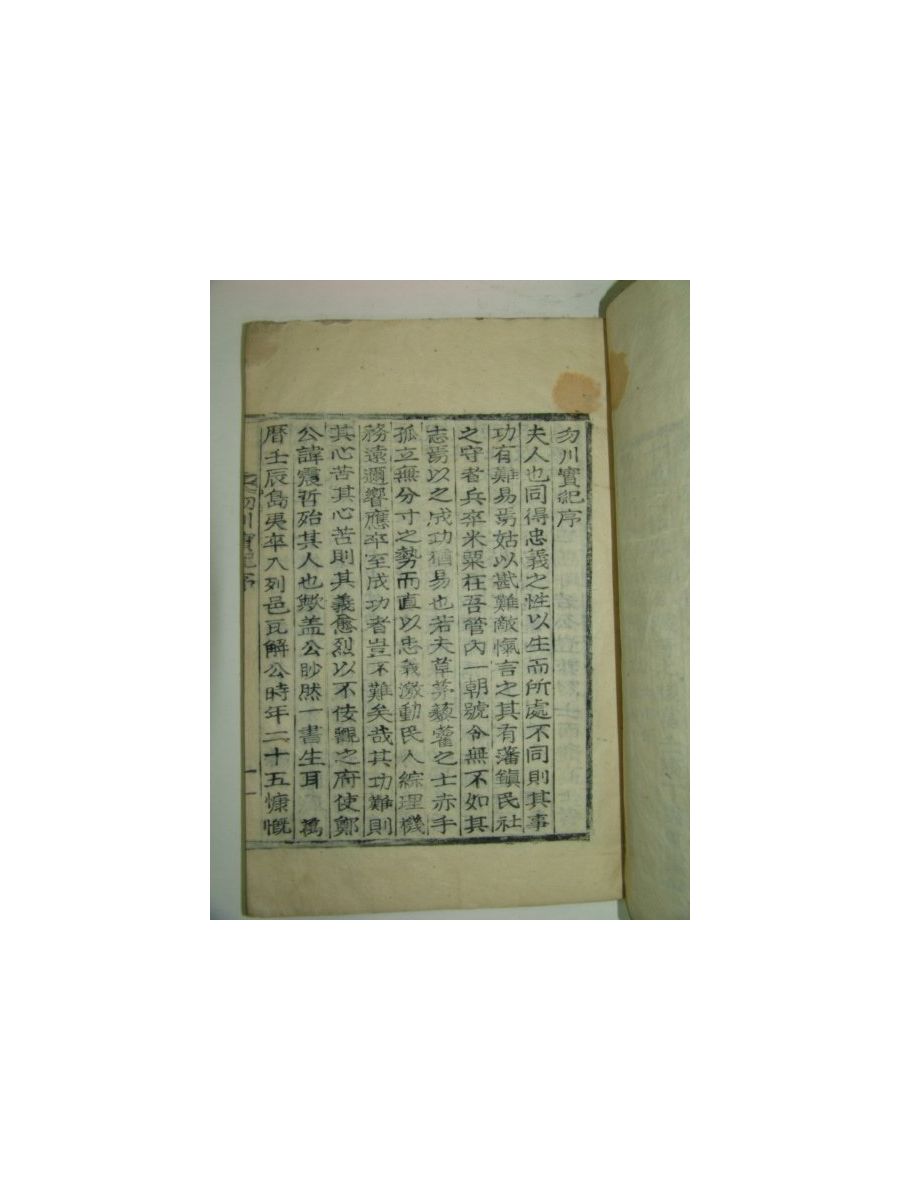 勿川實紀序
夫人也同得忠義之性以生而所處不同則其事
功有難易焉姑以戡難敵愾言之其有藩鎮民社
之守者兵卒米粟在吾管內一朝號令無不如其
志焉以之成功猶易也若夫草莽藜藿之士赤手
孤立無分寸之勢而直以忠義激動民人綜理機
務遠邇響應卒至成功者豈不難矣哉其功難則
其心苦其心苦則其義愈烈以不佞觀之府使鄭
公諱震哲殆其人也歟盖公眇然一書生耳 萬
曆壬辰島夷卒入列邑瓦解公時年二十五慷慨
勿川實紀序 一